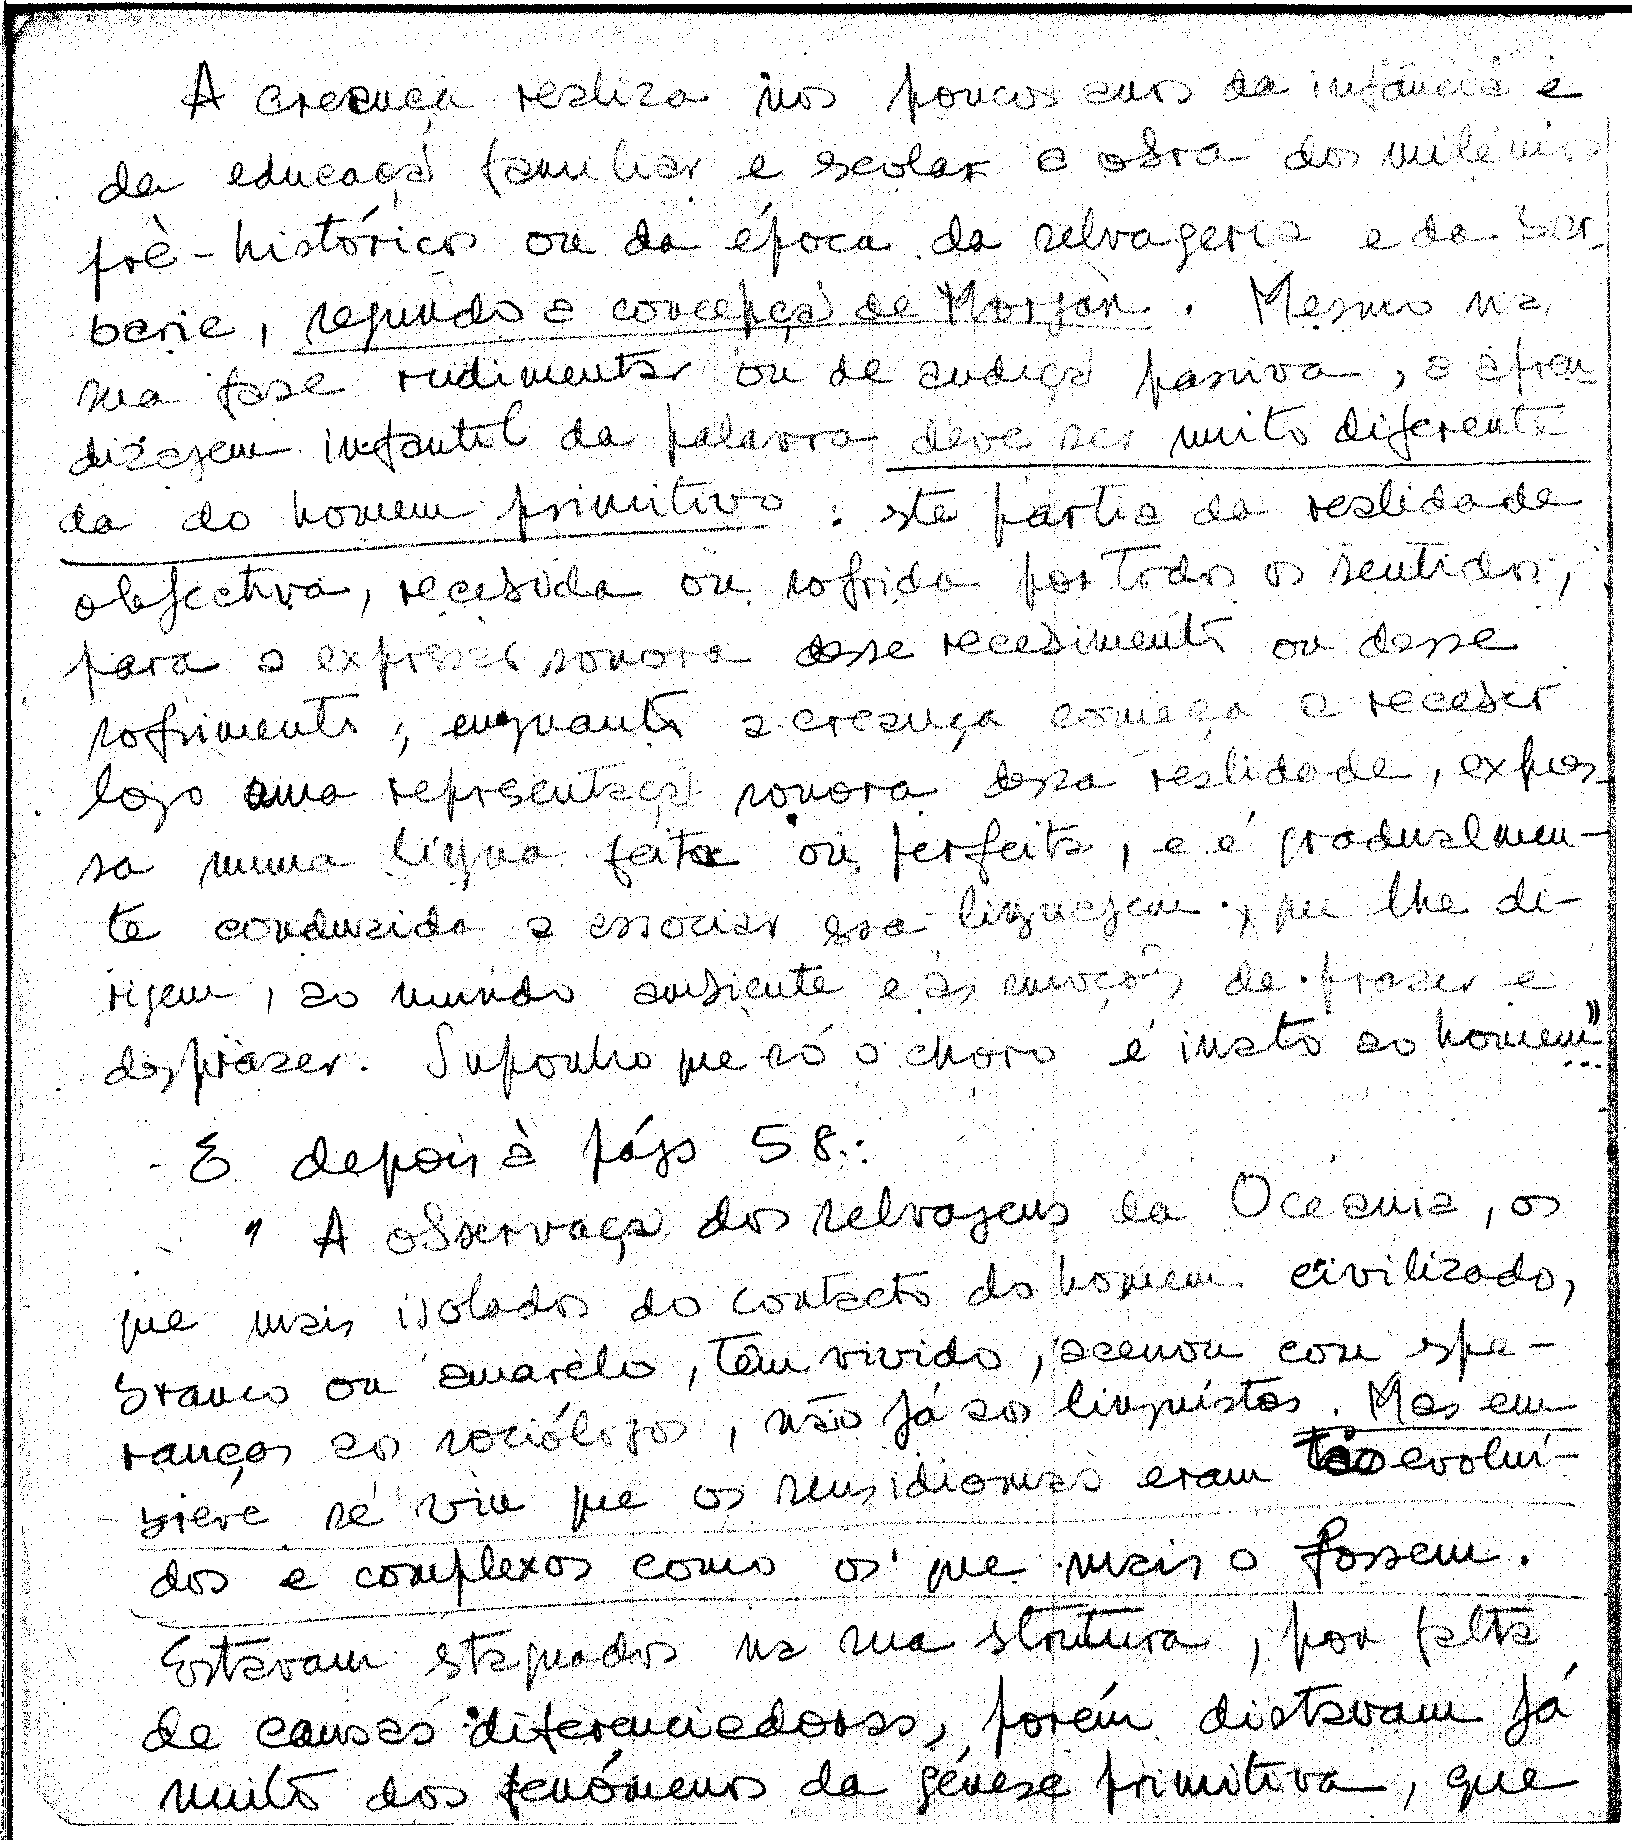 A creança realiza nos poucos anos da infância e
da educaçã familiar e escolar a obra dos milénios
pré-históricos ou da época da selvageria e da bar-
barie, segundo a concepçã de Morgan. Mesmo na
sua fase rudimentar ou de audiçã passiva, a apren
dizagem infantil da palavra deve ser muito diferente
da do homem primitivo: este partia da realidade
objectiva, recebida ou sofrida por todos os sentidos,
para a expressã sonora desse recebimento ou desse
sofrimento; enquanto a creança começa a receber
logo uma representaçã sonora dessa realidade, expres-
sa numa lingua feita ou perfeita, e é gradualmen-
te conduzida a associar essa linguagem, que lhe di-
rigem, ao mundo ambiente e às emoções de praser e
despraser. Suponho que só o choro é inato ao homem"...
E depois à págs 58:
" A observaçã dos selvagens da Oceania, os
que mais isolados do contacto do homem civilizado,
branco ou amarelo, têm vivido, acenou com espe-
ranças aos sociólogos, não já aos linguistas. Mas em
breve se viu que os seus idiomas eram tão evoluí-
dos e complexos como os que mais o fossem.
Estavam estagnados na sua strutura, por falta
de causas diferenciadoras, porém distavam já
muito dos fenómenos da génese primitiva, que